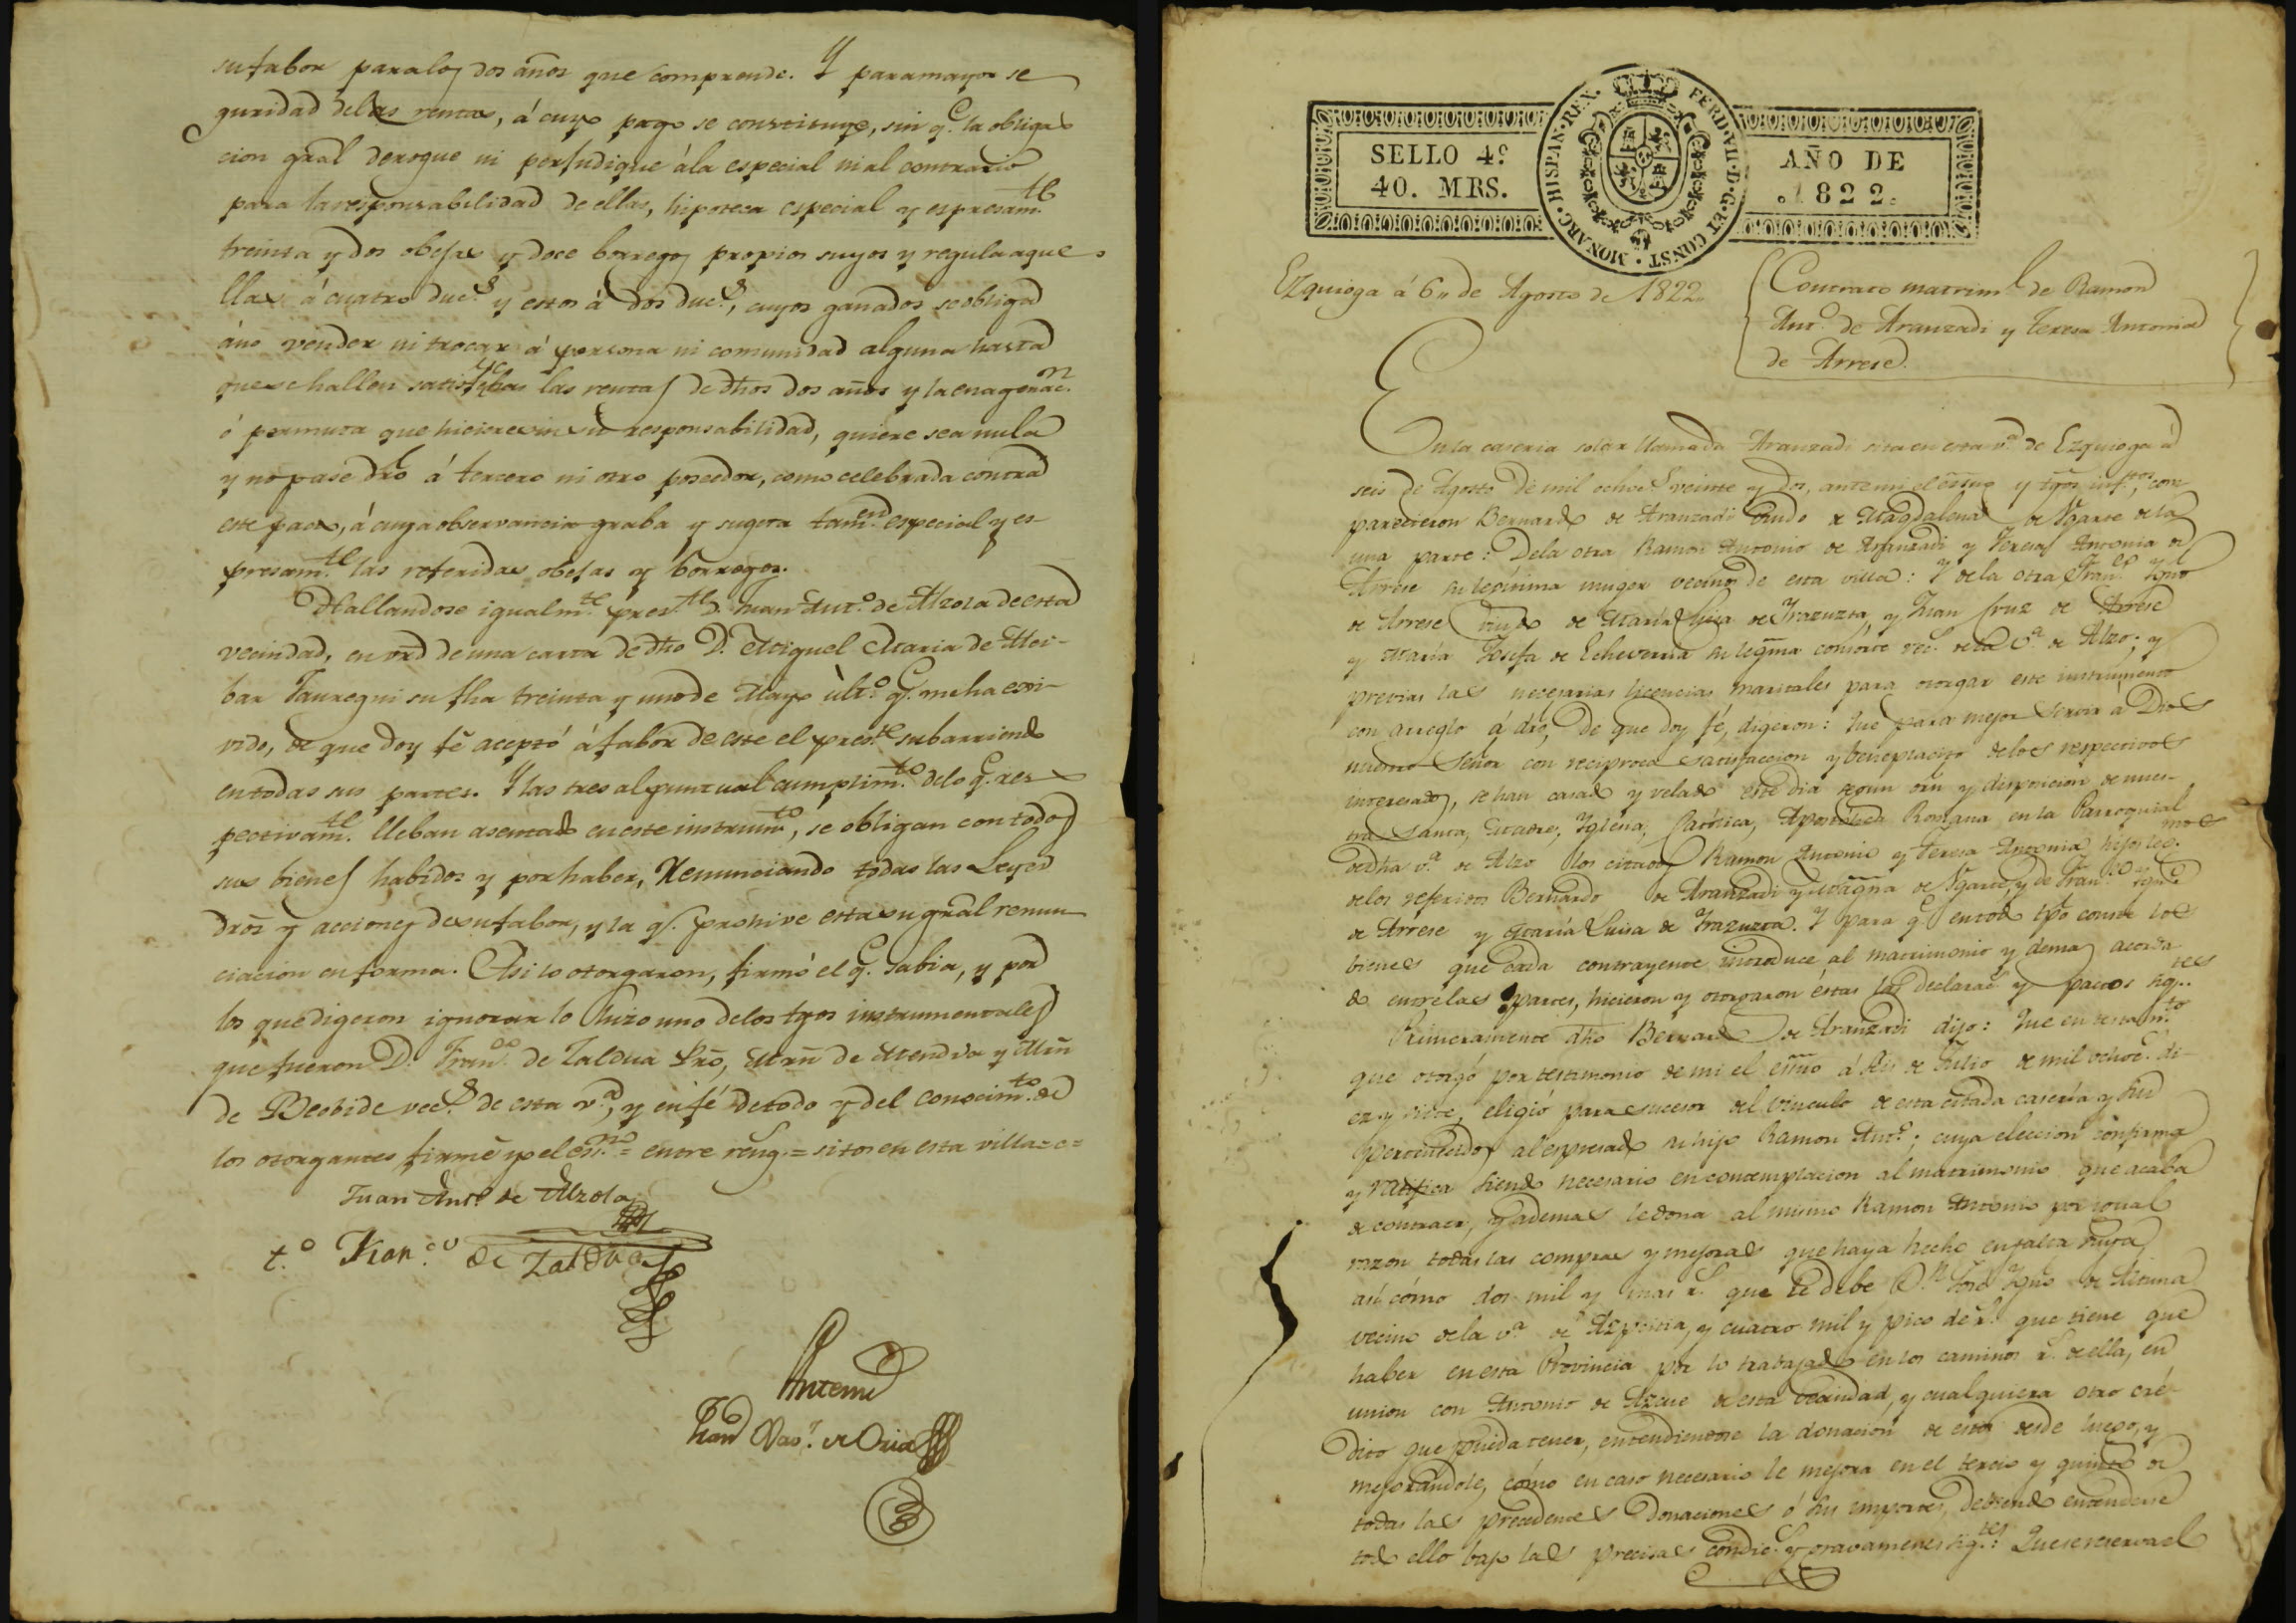 su fabor para los dos años que comprende. Y para mayor se
guridad de las rentas, á cuyo pago se constituye, sin q.e la obliga
cion gral derogue ni perjudique á la especial ni al contrario
para la responsabilidad de ellas, hipoteca especial y espresam.te
treinta y dos obejas y doce borregos propios suyos y regula aque
llas á cuatro duc.s y estos á dos duc.s, cuyos ganados se obliga
á no vender ni trocar á persona ni comunidad alguna hasta
que se hallen satisfechas las rentas de dhos dos años y la enagenac.n
ó permuta que hiciere sin su responsabilidad, quiere sea nula
y no pase dro á tercero ni otro poseedor, como celebrada contra
este pacto, á cuya observancia graba y sugeta tam.en especial y es-
presam.te las referidas obejas y borregos.
Hallandose igualm.te pres.te D. Juan Ant.o de Alzola de esta
vecindad, en vrd de una carta de dho D. Miguel Maria de Alci-
bar Jauregui su fha treinta y uno de Mayo últ.o q.e me ha esi-
vido, de que doy fé aceptó á fabor de este el pres.te subarriendo
en todas sus partes. Y las tres al puntual cumplim.to de lo q.e res
pectivam.te lleban asentado en este instrum.to, se obligan con todos
sus bienes habidos y por haber, Renunciando todas las Leyes
dros y acciones de su fabor, y la q.e prohive esta su gral renun
ciacion en forma. Asi lo otorgaron, firmó el q.e sabia, y por
los que digeron ignorar lo hizo uno de los tgos instrumentales
que fueron D. Fran.co de Zaldua Pro, Mrn de Mendia y Mrn
de Beobide vec.s de esta v.a, y en fé de todo y del conocim.to de
los otorgantes firmé yo el es.no = entre reng.s = sitos en esta villa = e =
Juan Ant.o de Alzola
t.o Fran.co de Zaldua
Antemi
Juan Bau.ta de Oria
SELLO 4º
40. MRS.
MONARC · HISPAN · REX · FERD · VII · D · G · ET CONST ·
AÑO DE
1822.
Ezquioga á 6,, de Agosto de 1822,,
Contrato matrim.l de Ramon
Ant.o de Aranzadi y Teresa Antonia
de Arrese.
En la caseria solar llamada Aranzadi sita en esta v.a de Ezquioga á
seis de Agosto de mil ochoc.s veinte y dos, ante mi el essno y tgos infr.tos, com
parecieron Bernardo de Aranzadi viudo de Magdalena de Ygarte de la
una parte: De la otra Ramon Antonio de Aranzadi y Teresa Antonia de
Arrese su legitima muger vecinos de esta villa: Y de la otra Fran.co Ygno
de Arrese viudo de Maria Luisa de Yrazuzta, y Juan Cruz de Arrese
y Maria Josefa de Echeverria su legma consorte vec.s de la v.a de Alzo; y
previas las necesarias licencias maritales para otorgar este instrumento
con arreglo á dro, de que doy fé, digeron: Que para mejor servir á Dios
nuestro Señor con reciproca satisfaccion y beneplacito de los respectivos
interesados, se han casado y velado este dia segun orn y disposicion de nues-
tra Santa, Madre, Yglesia, Católica, Apostolica Romana en la Parroquial
de dha v.a de Alzo los citados Ramon Antonio y Teresa Antonia hijos leg.mos
de los referidos Bernardo de Aranzadi y Magna de Ygarte, y de Fran.co Ygn.o
de Arrese y Maria Luisa de Yrazuzta. Y para q.e en todo tpo conste los
bienes que cada contrayente introduce al matrimonio y demas acorda
do entre las partes, hicieron y otorgaron éstas las declarac.s y pactos sig.tes
Primeramente dho Bernardo de Aranzadi dijo: Que en testam.to
que otorgó por testimonio de mi el essno á seis de Julio de mil ochoc.s di-
ez y siete, eligió para sucesor del vinculo de esta citada caseria y sus
pertenecidos al espresado su hijo Ramon Ant.o; cuya eleccion confirma
y ratifica siendo necesario en contemplacion al matrimonio que acaba
de contraer, y ademas le dona al mismo Ramon Antonio por igual
razon todas las compras y mejoras que haya hecho en falta suya
asi cómo dos mil y mas r.s que le debe D.n José Ygn.o de Altuna
vecino de la v.a de Azpeitia, y cuatro mil y pico de r.s que tiene que
haber en esta Provincia por lo trabajado en los caminos r.s de ella, en
union con Antonio de Azcue de esta vecindad, y cualquiera otro cré-
dito que pueda tener, entendiendose la donacion de esto desde luego, y
mejorandole, cómo en caso necesario le mejora en el tercio y quinto de
todas las precedentes donaciones ó sus importes, debiendo entenderse
todo ello bajo las precisas condic.s y gravamenes sig.tes: Que se reserva el